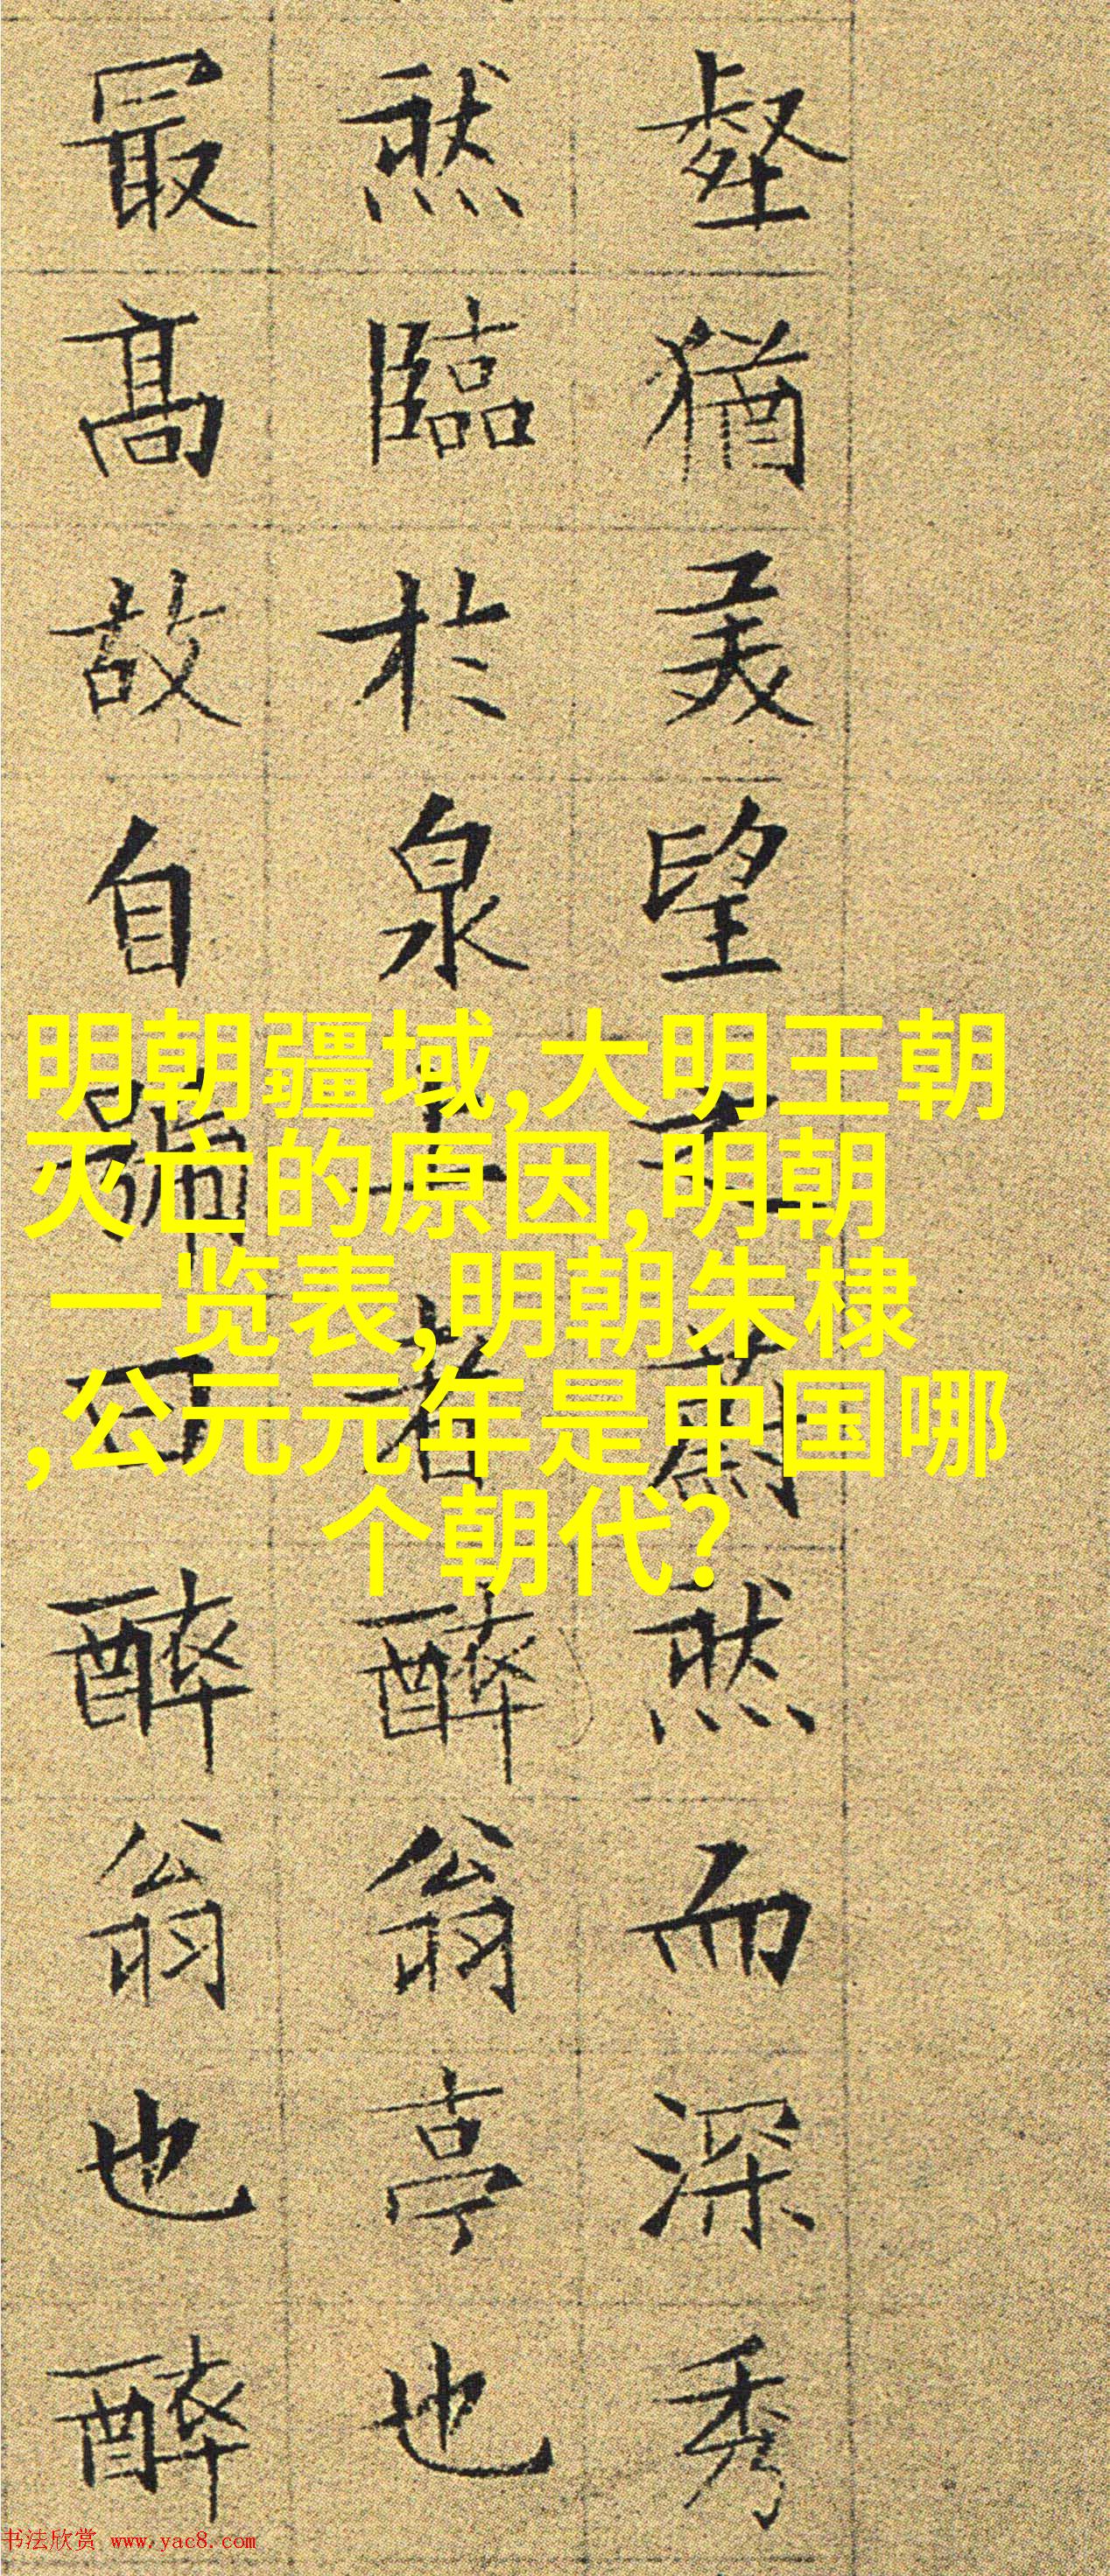 壑猶美望之蔚然而深秀
然臨於泉上者醉翁亭也
最高故自號曰醉翁也醉
明朝疆域,大明王朝
灭亡的原因,明朝
一览表,明朝朱棣
,公元元年是中国哪
个朝代?
书法欣赏 www.yac8.com